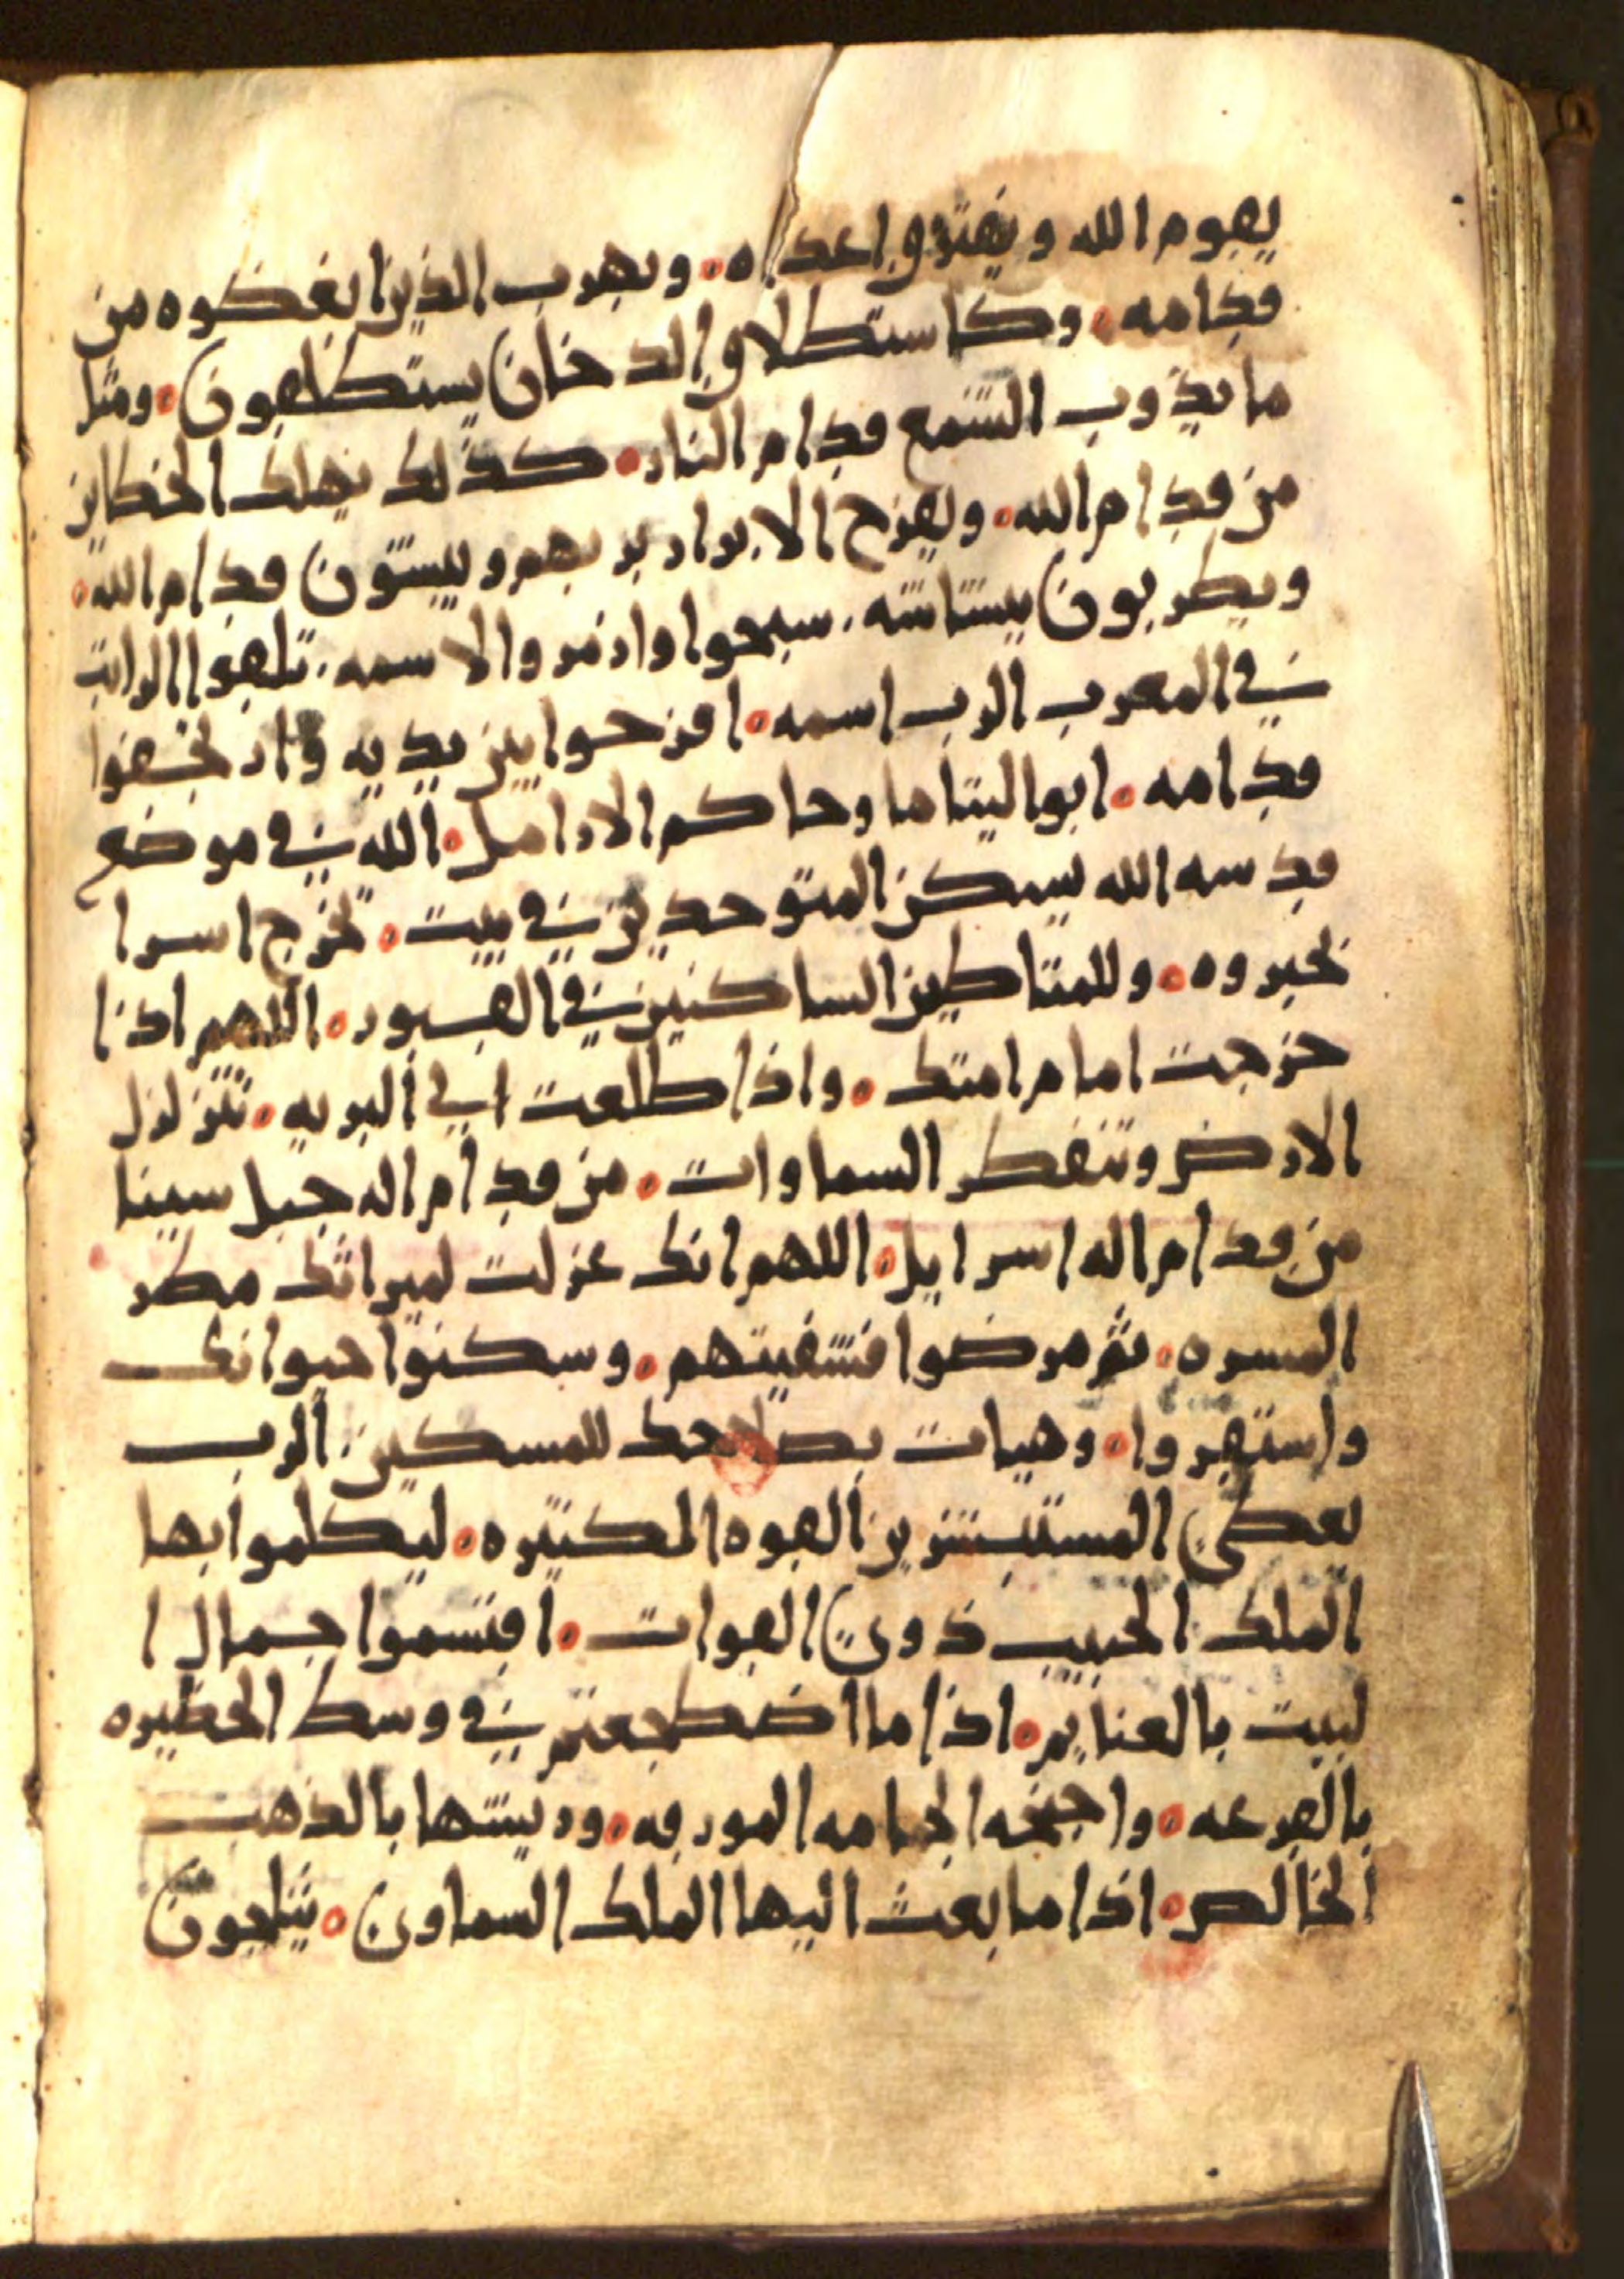 يقوم الله ويفترق اعداه ٠ ويهرب الذين ابغضوه من
قدامه ٠ وكاستطلاق الدخان يستطلقون ٠ ومثل
ما يذوب الشمع قدام النار ٠ كذلك يهلك الخطاين
من قدام الله ٠ ويفرح الابرار بربهم ويبشون قدام الله ٠
ويطربون ببشاشه ٠ سبحوا وازمروا لاسمه ٠ تلقوا الراكب
في المغرب الرب اسمه ٠ افرحوا بين يديه وارتجفوا
قدامه ٠ ابو اليتاما وحاكم الارامل ٠ الله في موضع
قدسه الله يسكن المتوحدين في بيت ٠ تخرج اسرا
بخبروه ٠ وللمتاطين الساكنين في القبور ٠ اللهم اذا
خرجت امام امتك ٠ واذا طلعت الى البريه ٠ تتزلزل
الارض وتنفطر السماوات ٠ من قدام اله جبل سينا
من قدام اله اسرايل ٠ اللهم انك عزلت لميراثك مطر
المسره ٠ ثم مرضوا فشفيتهم ٠ وسكنوا حيوانك
واستقروا ٠ وهيات بصلاحك للمسكين ٠ الرب
يعطي المستبشرين القوه الكثيره ٠ ليكلموا بها
الملك الحبيب ذوي القوات ٠ اقتسموا جمال ا
لبيت بالغنايم ٠ اذا ما اضطجعتم في وسط الحظيره
بالقرعه ٠ واجنحه الحمامه المورقه ٠ وريشتها بالذهب
الخالص ٠ اذا ما بعث اليها الملك السماوي ٠ يثلجون